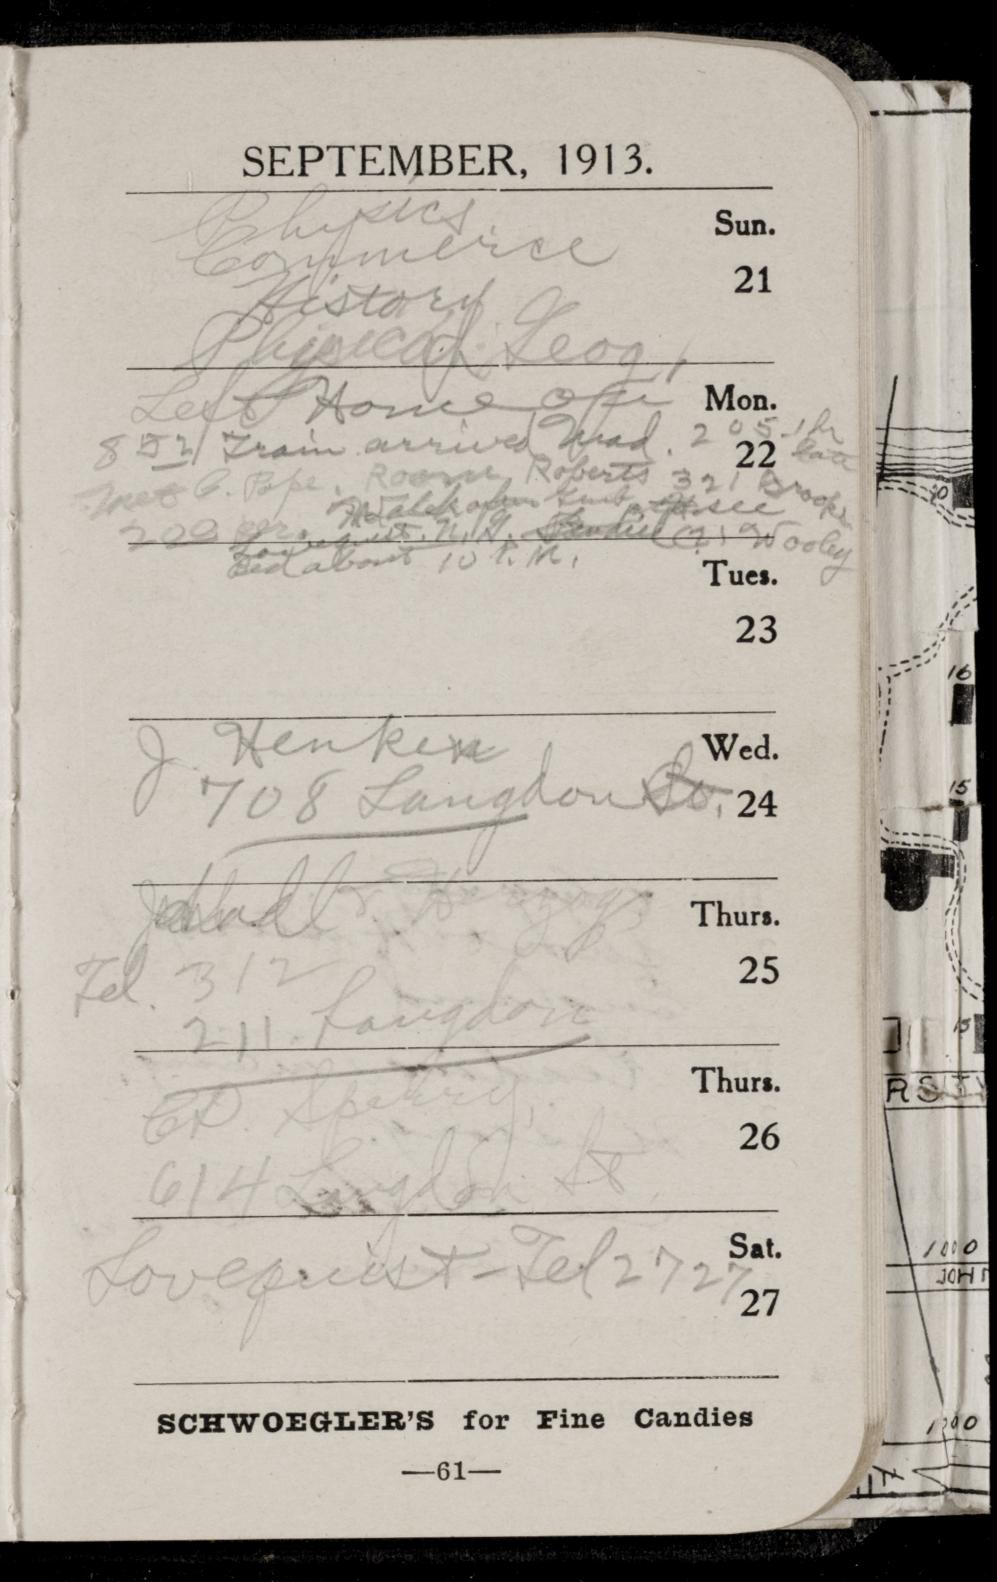 SEPTEMBER, 1913.
Physics
Sun.
Commerce
21
History
Physical Geog,
Left Home on
Mon.
8 52 Train arrived Mad. 2 05 1 hr
22
late
Met C. Pope. Room Roberts 321 Brooks
Lovequist. N. G. Wooley
Bed about 10 P. M.
Tues.
23
J. Henken
Wed.
708 Langdon St.
24
Thurs.
Tel. 312
25
211. Langdon
Thurs.
Sperry,
26
614 Langdon St.
Sat.
Lovequist - Tel 2727
27
SCHWOEGLER'S for Fine Candies
—61—
16
15
15
1000
JOHN
1000